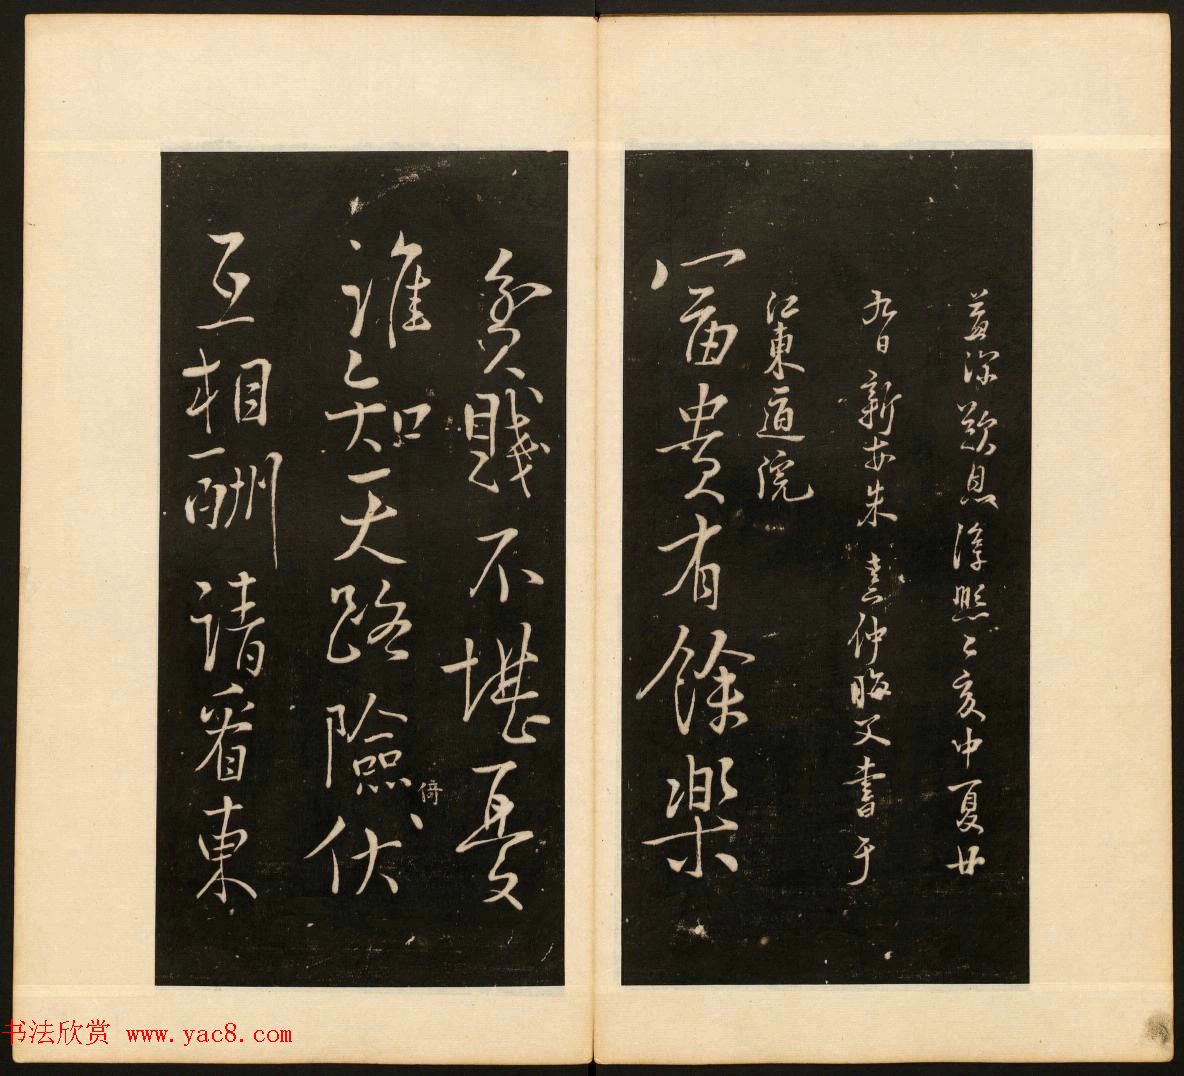 益深歎息淳熙己亥中夏廿
九日新安朱熹仲晦父書于
江東道院
富貴有餘樂
貧賤不堪憂
誰知天路險
倚伏
互相酬請看東
书法欣赏 www.yac8.com